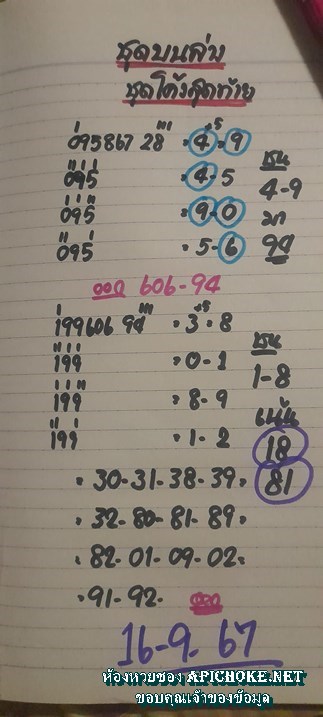 ชุดบนล่าง
ชุดโค้งสุดท้าย
095867 28 = 4 - 9
095 = 4 - 5
095 = 9 - 0
095 = 5 - 6
ชน
4 - 9
มา
94
ออก 606 - 94
199606 94 = 3 - 8
199 = 0 - 1
199 = 8 - 9
199 = 1 - 2
ชน
1 - 8
เน้น
18
81
= 30 - 31 - 38 - 39 =
= 32 - 80 - 81 - 89 =
= 82 - 01 - 09 - 02 =
= 91 - 92 -
16 - 9 - 67
ห้องหวยซอง APICHOKE.NET
ขอบคุณเจ้าของข้อมูล